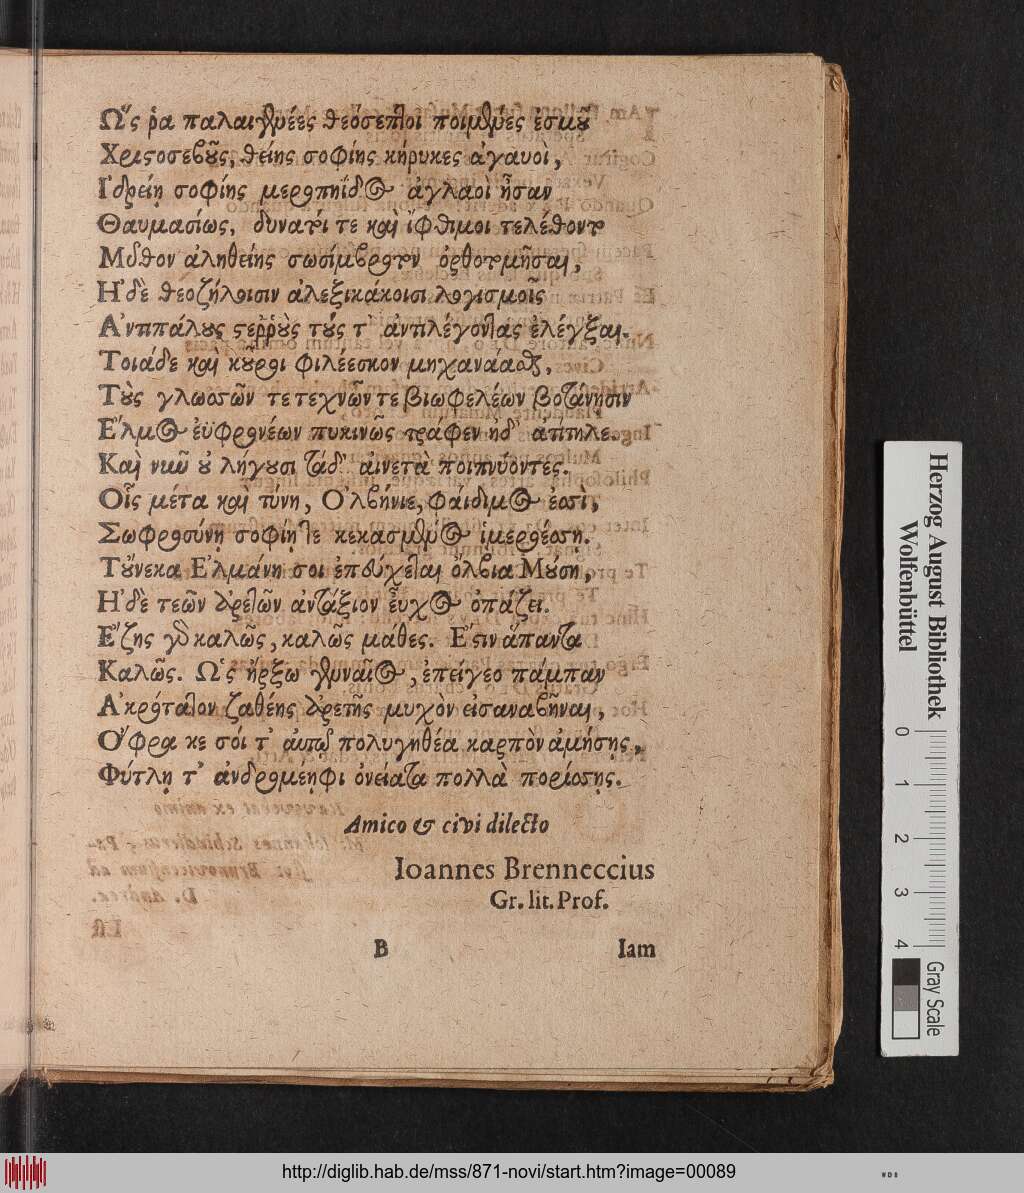 Ὥς ῥα παλαιγενέες θεόσεπτοι ποιμένες ἐσμοῦ
Χριστοσεβοῦς, θείης σοφίης κήρυκες ἀγαυοὶ,
Ἰδρείῃ σοφίης μεροπηΐδος ἀγλαοὶ ἦσαν
Θαυμασίως, δυνατοί τε καὶ ἴφθιμοι τελέθοντο
Μῦθον ἀληθείης σωσίμβροτον ὀρθοτομῆσαι,
Ἠδὲ θεοζήλοισιν ἀλεξικάκοισι λογισμοῖς
Ἀντιπάλους στεῤῥοὺς τούς τ' ἀντιλέγοντας ἐλέγξαι.
Τοιάδε καὶ κοῦροι φιλέεσκον μηχανάασθαι,
Τοὺς γλωσσῶν τε τεχνῶν τε βιωφελέων βοτάνησιν
Ἕλμος ἐϋφρονέων πυκινῶς τράφεν ἠδ' ἀτίτηλε.
Καὶ νῦν οὐ λήγουσι τάδ' αἰνετὰ ποιπνύοντες.
Οἷς μέτα καὶ τύνη, Ὀλβήνιε, φαίδιμος ἐσσὶ,
Σωφροσύνῃ σοφίῃ τε κεκασμένος ἱμεροέσσῃ.
Τοὔνεκα Ἑλμάνη σοι ἐπεύχεται ὄλβια Μούση,
Ἠδὲ τεῶν ἀρετῶν ἀντάξιον εὖχος ὀπάζει.
Ἔζης γὰρ καλῶς, καλῶς μάθες. Ἔστιν ἅπαντα
Καλῶς. Ὡς ἤρξω γενναῖος, ἐπείγεο πάμπαν
Ἀκρότατον ζαθέης ἀρετῆς μυχὸν εἰσαναβῆναι,
Ὄφρα κε σόι τ' αὐτῷ πολυγηθέα καρπὸν ἀμήσῃς,
Φύτλῃ τ' ἀνδρομεῃφι ὀνείατα πολλὰ πορίσσῃς.
Amico & civi dilecto
Ioannes Brenneccius
Gr. lit. Prof.
B Iam
Herzog August Bibliothek
Wolfenbüttel
0 1 2 3 4
Gray Scale
http://diglib.hab.de/mss/871-novi/start.htm?image=00089